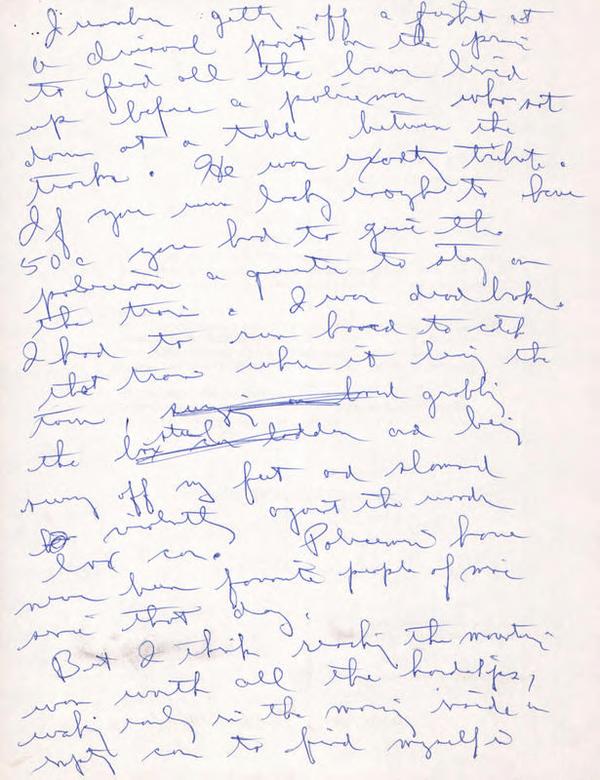 I remember getting off a freight at
a divisional point on the prairie
to find all the bums lined
up before a policeman who sat
down at a table between the
tracks. He was exacting tribute.
If you were lucky enough to have
50c you had to give the
policeman a quarter to stay on
the train. I was dead broke.
I had to run hard to catch
that train when it being the
town, swinging on board grabbing
the box steel ladder and being
swung off my feet and slammed
violently against the wooden
box car. Policemen have
never been favorite people of mine
since that day.
But I think reaching the mountains
was worth all the hardships,
waking early in the morning inside an
empty car to find myself in